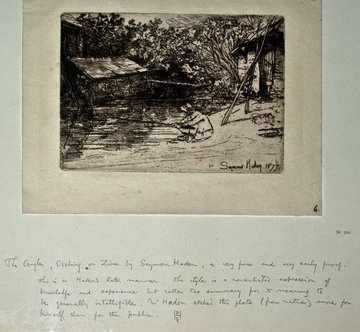 Seymour Haden 1877
6.
The Angler, Etching on Zinc by Seymour Haden, a very fine and very early proof.
This is in Haden's later manner. The style is a concentrated expression of
knowledge and experience but rather too summary for its meaning to
be generally intelligible. Mr Haden etched this plate (from nature) more for
himself than for the public.